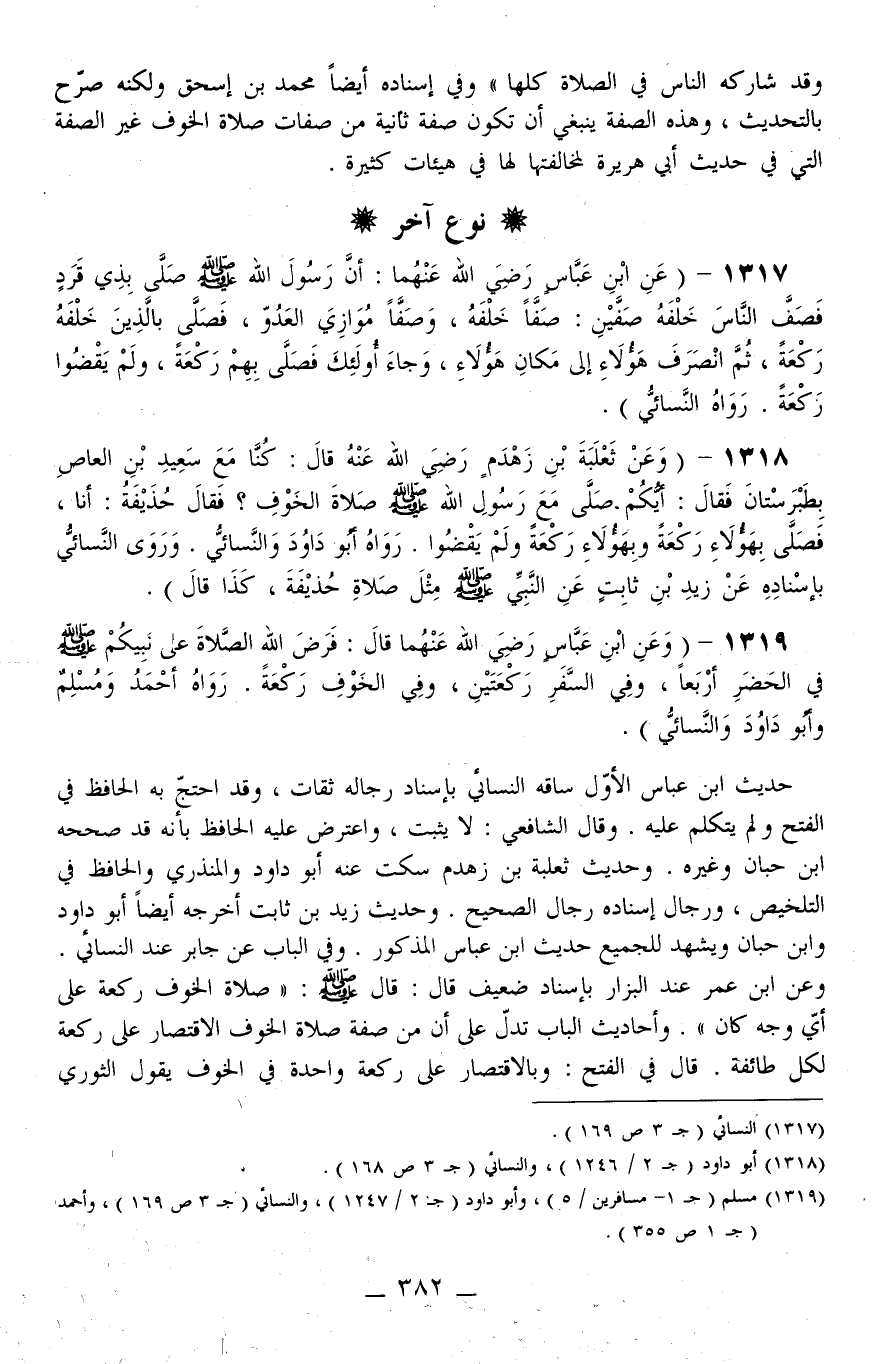 وقد شاركه الناس في الصلاة كلها » وفي إسناده أيضاً محمد بن إسحق ولكنه صرّح
بالتحديث ، وهذه الصفة ينبغي أن تكون صفة ثانية من صفات صلاة الخوف غير الصفة
التي في حديث أبي هريرة لمخالفتها لها في هيئات كثيرة .
نوع آخر
١٣١٧ - ( عَنِ ابْنِ عَبَّاسٍ رَضِيَ الله عَنْهُما : أنَّ رَسُولَ الله ﷺ صَلَّى بِذِي قَرَدٍ
فَصَفَّ النَّاسَ خَلْفَهُ صَفَّيْنِ : صَفَّاً خَلْفَهُ ، وَصَفَّاً مُوَازِيَ العَدُوّ ، فَصَلَّى بالَّذِينَ خَلْفَهُ
رَكْعَةً ، ثُمَّ انْصَرَفَ هَؤُلَاءِ إلى مَكانِ هَؤُلَاءِ ، وَجاءَ أُولَئِكَ فَصَلَّى بِهِمْ رَكْعَةً ، ولَمْ يَقْضُوا
رَكْعَةً . رَوَاهُ النَّسائيُّ ) .
١٣١٨ - ( وَعَنْ ثَعْلَبَةَ بْنِ زَهْدَمٍ رَضِيَ الله عَنْهُ قالَ : كُنَّا مَعَ سَعِيدِ بْنِ العاصِ
بِطَبَرَسْتانَ فَقالَ : أيُّكُمْ صَلَّى مَعَ رَسُولِ الله ﷺ صَلاةَ الخَوْفِ ؟ فَقالَ حُذَيْفَةُ : أنا ،
فَصَلَّى بِهَؤُلَاءِ رَكْعَةً وبِهَؤُلَاءِ رَكْعَةً ولَمْ يَقْضُوا . رَوَاهُ أبُو دَاوُدَ وَالنَّسائيُّ . وَرَوَى النَّسائيُّ
بإسْنادِهِ عَنْ زيدِ بْنِ ثابِتٍ عَنِ النَّبِيِّ ﷺ مِثْلَ صَلاةِ حُذيْفَةَ ، كَذَا قالَ ) .
١٣١٩ - ( وَعَنِ ابْنِ عَبَّاسٍ رَضِيَ الله عَنْهُما قالَ : فَرَضَ الله الصَّلاةَ على نَبِيكُمْ ﷺ
في الحَضَرِ أرْبَعاً ، وفِي السَّفَرِ رَكْعَتَيْنِ ، وفِي الخَوْفِ رَكْعَةً . رَوَاهُ أحْمَدُ وَمُسْلِمٌ
وأبُو دَاوُدَ وَالنَّسائيُّ ) .
حديث ابن عباس الأوّل ساقه النسائي بإسناد رجاله ثقات ، وقد احتجّ به الحافظ في
الفتح ولم يتكلم عليه . وقال الشافعي : لا يثبت ، واعترض عليه الحافظ بأنه قد صححه
ابن حبان وغيره . وحديث ثعلبة بن زهدم سكت عنه أبو داود والمنذري والحافظ في
التلخيص ، ورجال إسناده رجال الصحيح . وحديث زيد بن ثابت أخرجه أيضاً أبو داود
وابن حبان ويشهد للجميع حديث ابن عباس المذكور . وفي الباب عن جابر عند النسائي .
وعن ابن عمر عند البزار بإسناد ضعيف قال : قال ﷺ : « صلاة الخوف ركعة على
أيّ وجه كان » . وأحاديث الباب تدلّ على أن من صفة صلاة الخوف الاقتصار على ركعة
لكل طائفة . قال في الفتح : وبالاقتصار على ركعة واحدة في الخوف يقول الثوري
(١٣١٧) النسائي ( جـ ٣ ص ١٦٩ ) .
(١٣١٨) أبو داود ( جـ ٢ / ١٢٤٦ ) ، والنسائي ( جـ ٣ ص ١٦٨ ) .
(١٣١٩) مسلم ( جـ ١- مسافرين / ٥ ) ، وأبو داود ( جـ ٢ / ١٢٤٧ ) ، والنسائي ( جـ ٣ ص ١٦٩ ) ، وأحمد
( جـ ١ ص ٣٥٥ ) .
ــ ٣٨٢ ــ